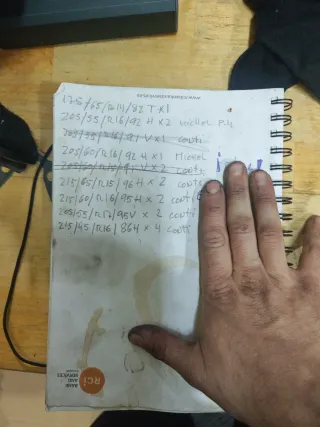 175/65/R14/82T x 1
205/55/R16/92 H x 2 Michel P4
205/55/R16/91 V x 1 conti
205/60/R16/92 H x 1 Michel
205/60/R16/91 V x 2 conti
215/65/R15/96H x 2 conti
215/60/R16/95H x 2 conti
205/55/R17/95V x 2 conti
215/45/R16/86H x 4 conti
RCI
BANK
AND
SERVICES